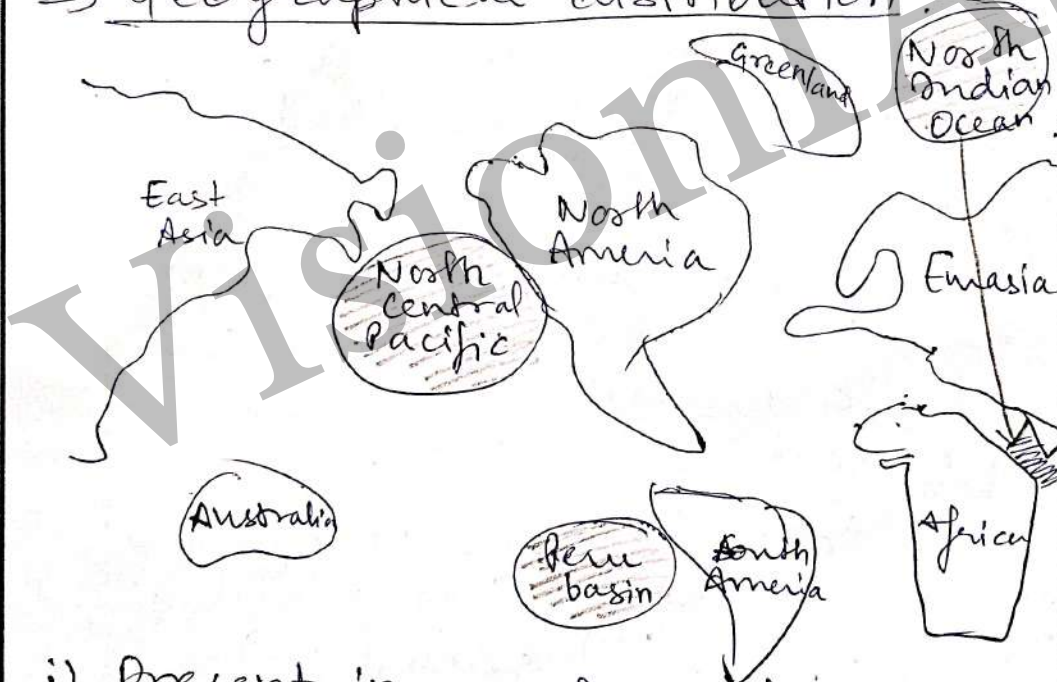 → Geographical distribution:
Greenland
North
Indian
Ocean
East
Asia
North
Ameria
North
Central
Pacific
Eurasia
Australia
Peru
basin
South
Ameria
Africa
i) Present in
VisionIA